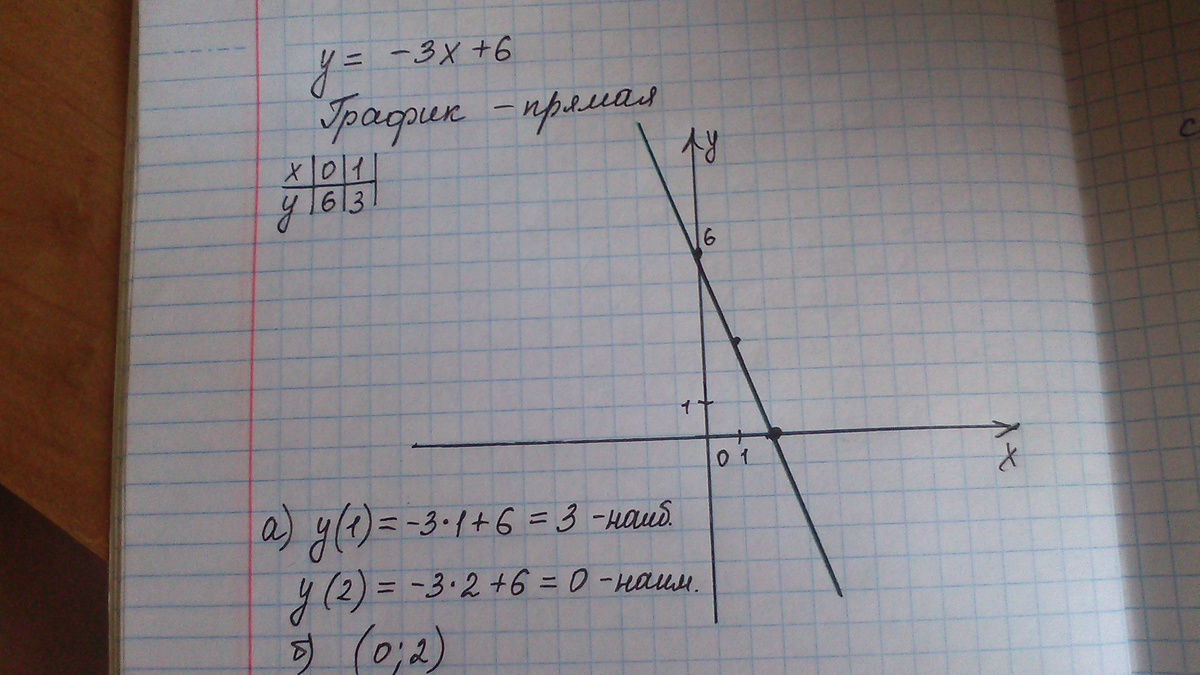 y = -3x + 6
График - прямая
x | 0 | 1
y | 6 | 3
y
6
1
0 1
x
а) y(1) = -3·1 + 6 = 3 - наиб.
y(2) = -3·2 + 6 = 0 - наим.
б) (0; 2)
с